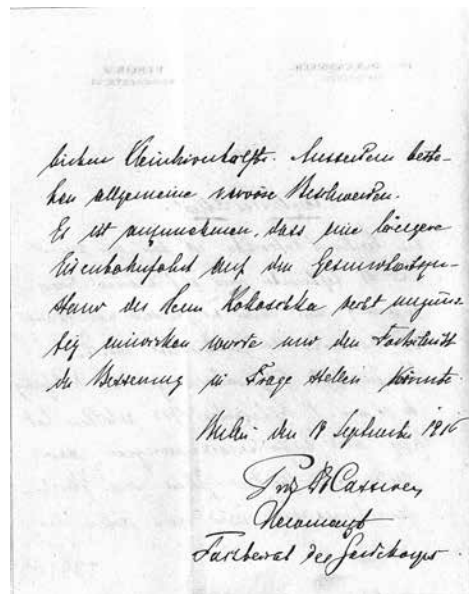 linken Kleinhirnhälfte. Ausserdem beste-
hen allgemeine nervöse Beschwerden.
Es ist anzunehmen, dass eine längere
Eisenbahnfahrt auf den Gesundheitszu-
stand des Herrn Kokoschka recht ungüns-
tig einwirken würde und den Fortschritt
der Besserung in Frage stellen könnte.
Berlin den 18 September 1916
Prof Dr Cassirer
Nervenarzt
Fachbeirat des Gardekorps